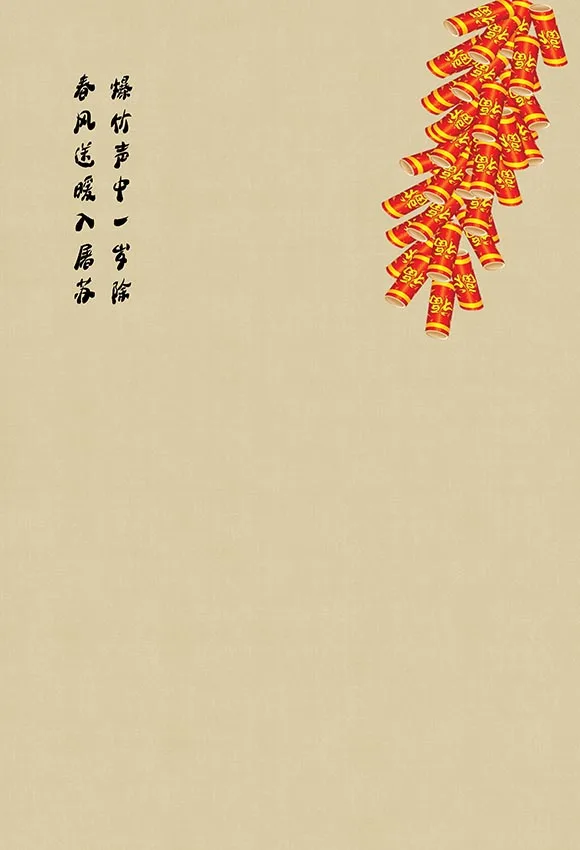 爆竹声中一岁除
春风送暖入屠苏
福